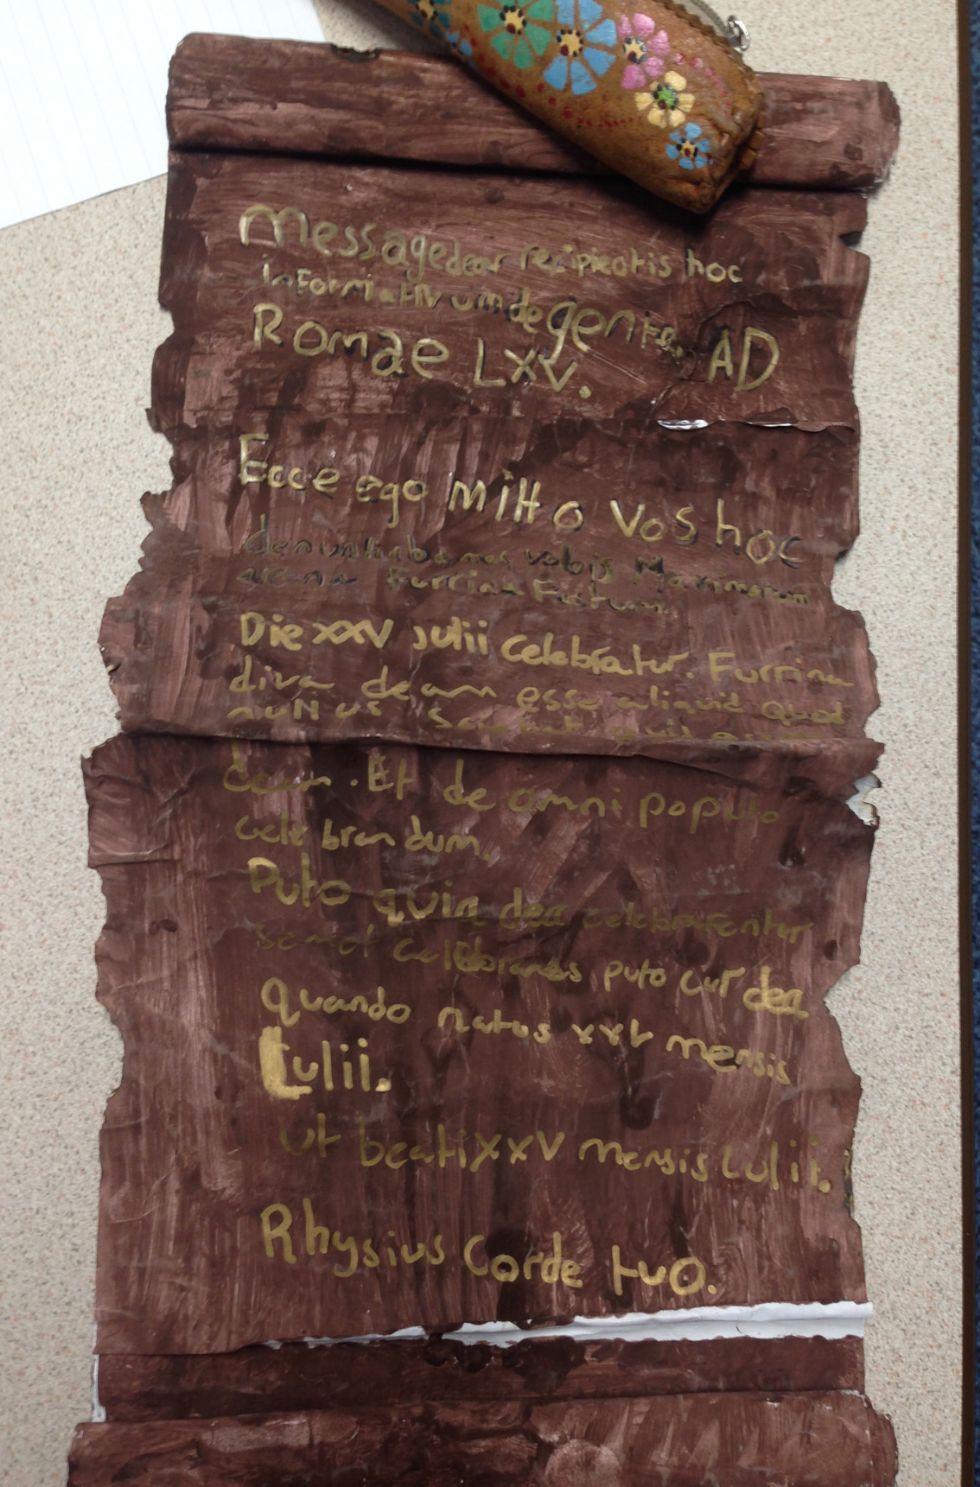 Message dear recipieotis hoc
informativum de gente
Romae LXV. AD
Ecce ego mitto vos hoc
vobis Maximum
arcana Furrina Festum.
Die XXV Julii celebratur. Furrina
diva deam esse aliquid quod
nuNus quis
deam. Et de omni populo
celebrandum.
Puto quia dea celebrarentur
puto cur dea
quando natus xxV mensis
Lulii.
ut beati XXV mensis Lulii.
Rhysius Corde tuo.